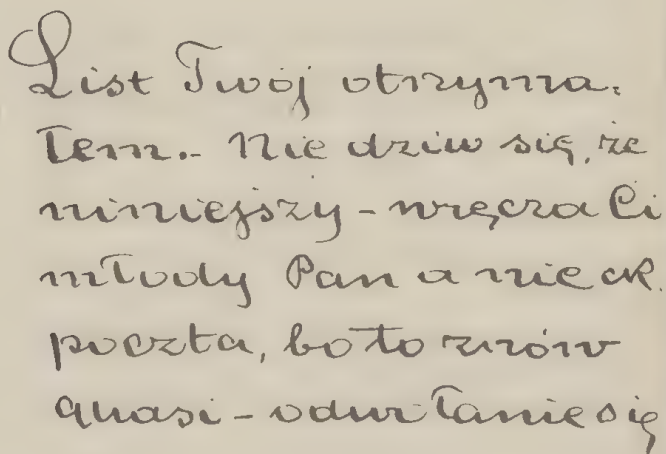 List Twój otrzyma-
łem.- Nie dziw się, że
niniejszy - wręcza Ci
młody Pan a nie ck.
poczta, bo to znów
quasi - odwołanie się